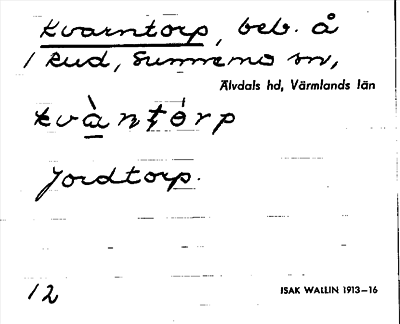 Kvarntorp, beb. å
1 Rud, Sunnemo sn,
Älvdals hd, Värmlands län
kvàntórp
Jordtorp.
12
ISAK WALLIN 1913–16